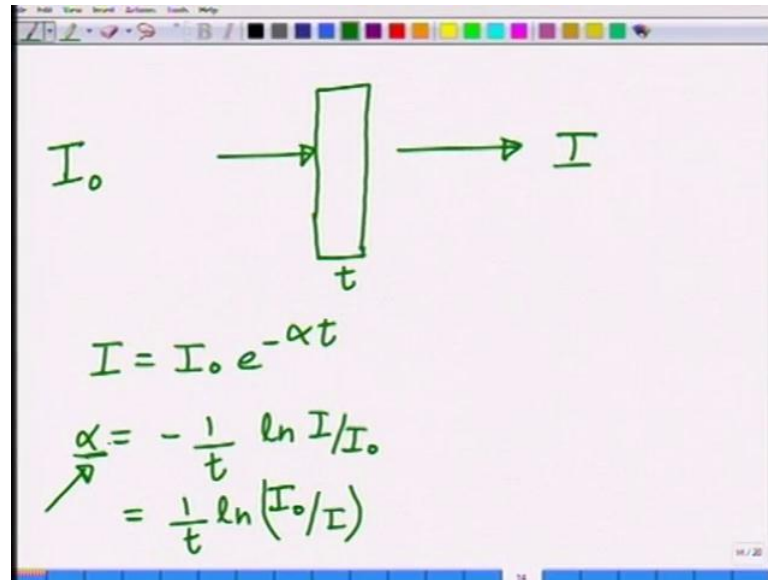 Edit View Insert Actions Tools Help
B I
I₀ I
t
I = I₀ e^{-αt}
α = - 1/t ln I/I₀
= 1/t ln(I₀/I)
14